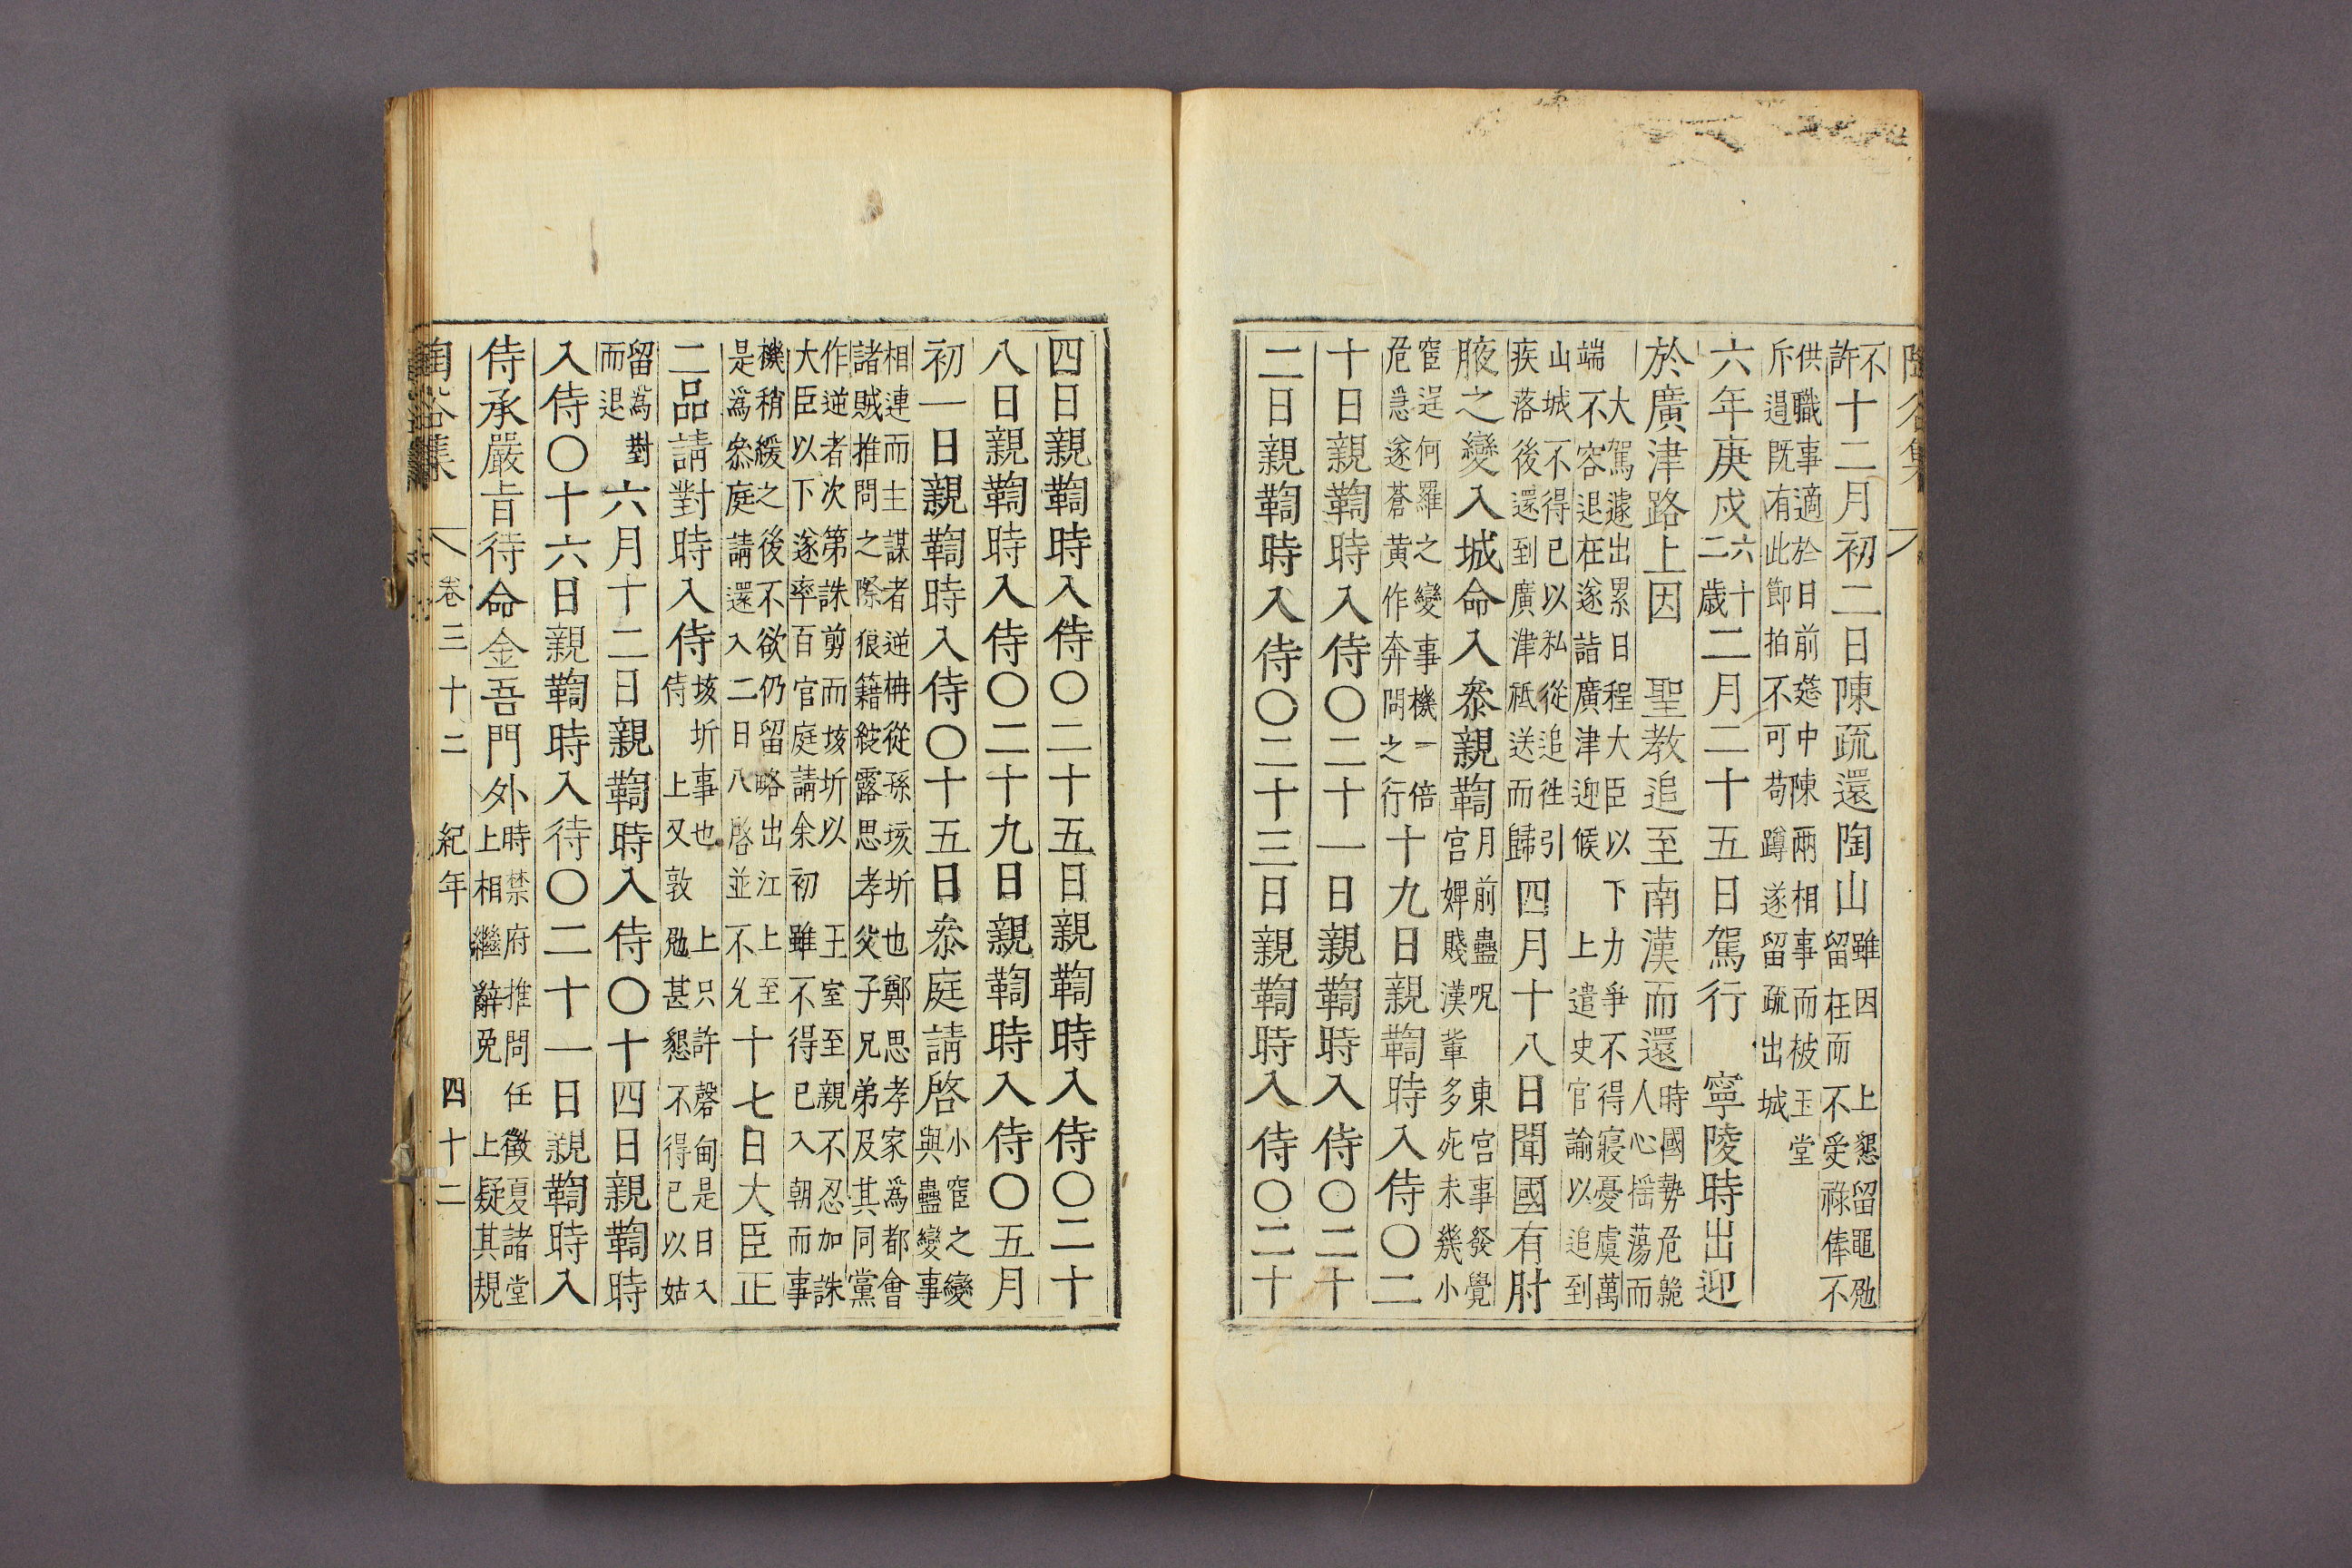 陶谷集
不許十二月初二日陳疏還陶山雖因 上懇留黽勉留在而不受祿俸不
供職事適於日前筵中陳兩相事而被玉堂斥逿既有此節拍不可苟蹲遂留疏出城
六年庚戍六十二歲二月二十五日駕行 寧陵時出迎
於廣津路上因 聖教追至南漢而還時國勢危人心搖蕩而
大駕遽出累日程大臣以下力爭不得寢憂虞萬端不容退在遂詣廣津迎候 上遣史官諭以追到
山城不得已以私從追徃引疾落後還到廣津祗送而歸四月十八日聞國有肘
腋之變入城命入叅親鞫月前蠱呪 東宮事發覺宮婢賤漢軰多死未幾小
窟逞何羅之變事機一倍危急遂蒼黃作奔問之行十九日親鞫時入侍○二
十日親鞫時入侍○二十一日親鞫時入侍○二十
二日親鞫時入侍○二十三日親鞫時入侍○二十
四日親鞫時入侍○二十五日親鞫時入侍○二十
八日親鞫時入侍○二十九日親鞫時入侍○五月
初一日親鞫時入侍○十五日叅庭請啓小窟之變與蠱變事
相連而主謀者逆枏從孫垓圻也鄭思孝家爲都會諸賊推問之際狼籍綻露思孝父子兄弟及其同黨
作逆者次第誅剪而垓圻以 王室至親不忍加誅大臣以下遂率百官庭請余初雖不得已入朝而事
機稍緩之後不欲仍留略出江上至是爲叅庭請還入二日八啓並不允十七日大臣正
二品請對時入侍垓圻事也 上只許磬甸是日入侍 上又敦勉甚懇不得已以姑
留爲對而退六月十二日親鞫時入侍○十四日親鞫時
入侍○十六日親鞫時入待○二十一日親鞫時入
侍承嚴旨待命金吾門外時禁府推問任徵夏諸堂上相繼辭免 上疑其規
陶谷集 卷三十二 紀年 四十二